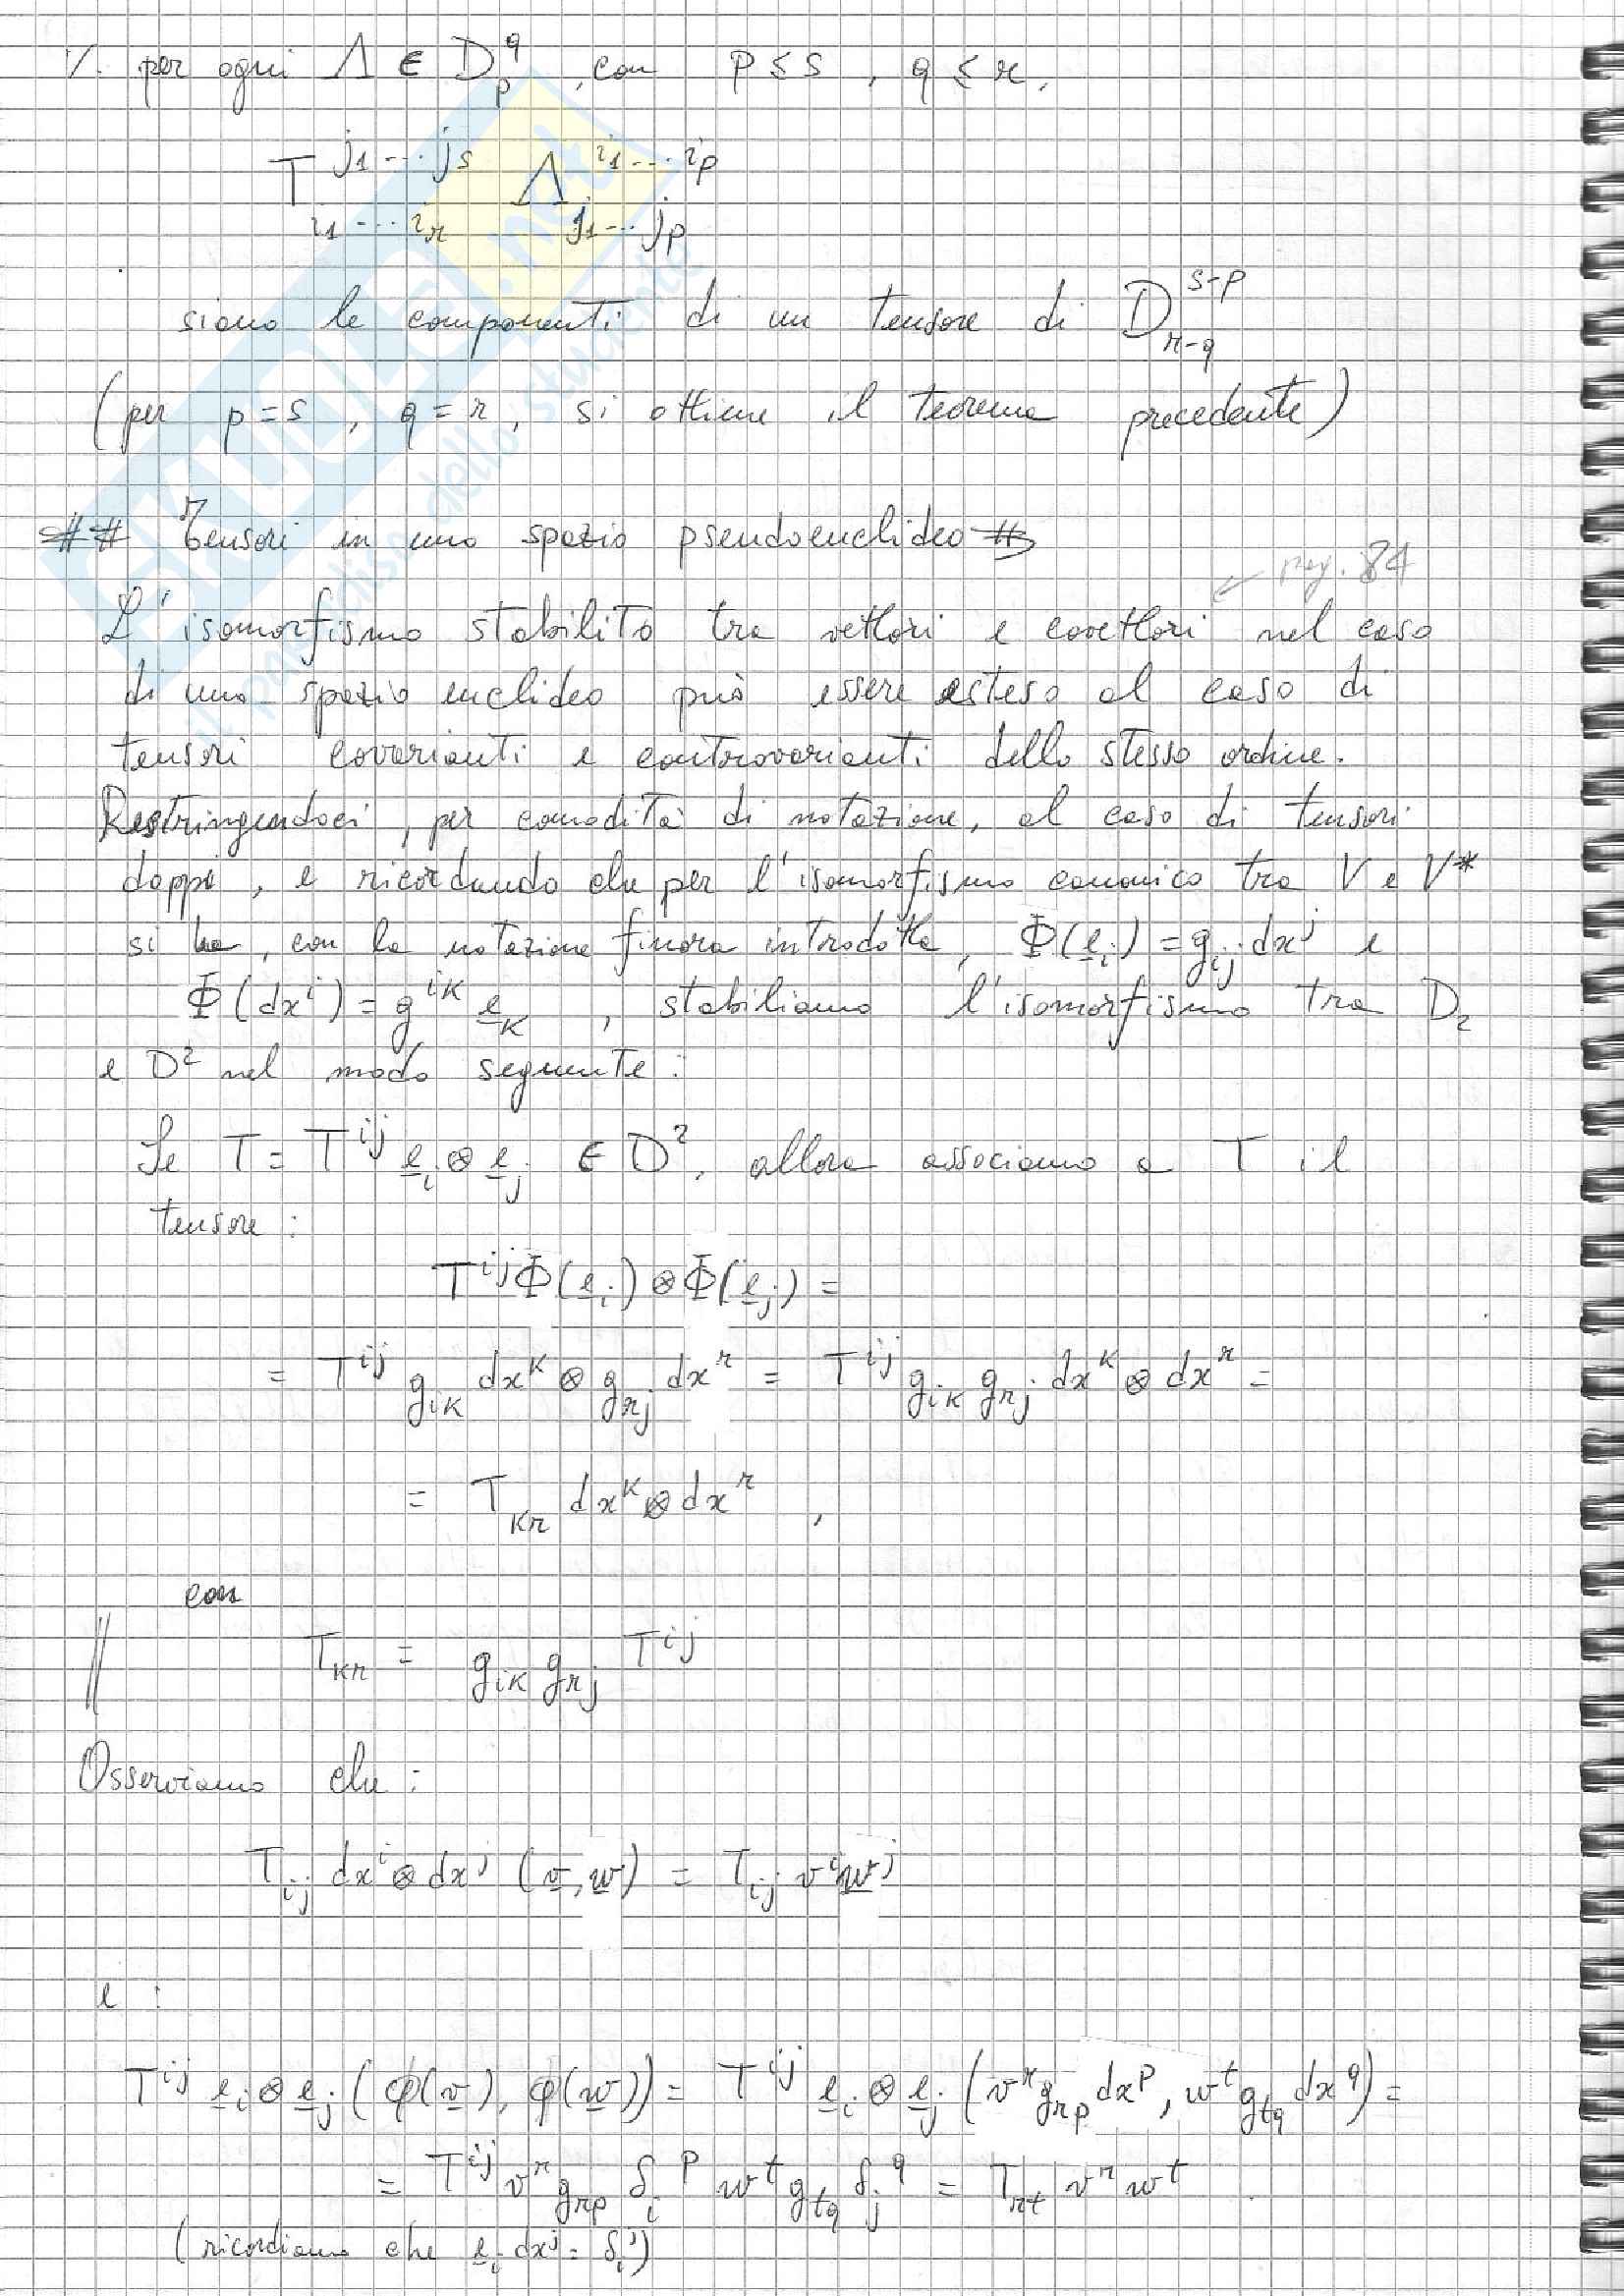 ·/. per ogni Λ ∈ D_p^q , con p ≤ s , q ≤ r ,
T^{j₁...j_s}_{i₁...i_r} Λ^{i₁...i_p}_{j₁...j_p}
siano le componenti di un tensore di D_{r-q}^{s-p}
(per p = s , q = r , si ottiene il teorema precedente)
## Tensori in uno spazio pseudoeuclideo #
← pag. 84
L'isomorfismo stabilito tra vettori e covettori nel caso
di uno spazio euclideo può essere esteso al caso di
tensori covarianti e controvarianti dello stesso ordine.
Restringendoci, per comodità di notazione, al caso di tensori
doppi, e ricordando che per l'isomorfismo canonico tra V e V*
si ha, con la notazione finora introdotta, Φ(e_i) = g_{ij} dx^j e
Φ(dx^i) = g^{ik} e_k , stabiliamo l'isomorfismo tra D₂
e D² nel modo seguente :
Se T = T^{ij} e_i ⊗ e_j ∈ D², allora associamo a T il
tensore :
T^{ij} Φ(e_i) ⊗ Φ(e_j) =
= T^{ij} g_{ik} dx^k ⊗ g_{rj} dx^r = T^{ij} g_{ik} g_{rj} dx^k ⊗ dx^r =
= T_{kr} dx^k ⊗ dx^r ,
con
T_{kr} = g_{ik} g_{rj} T^{ij}
Osserviamo che :
T_{ij} dx^i ⊗ dx^j (v, w) = T_{ij} v^i w^j
e :
T^{ij} e_i ⊗ e_j (φ(v), φ(w)) = T^{ij} e_i ⊗ e_j (v^r g_{rp} dx^p, w^t g_{tq} dx^q) =
= T^{ij} v^r g_{rp} δ_i^p w^t g_{tq} δ_j^q = T_{rt} v^r w^t
(ricordiamo che e_i dx^j = δ_i^j)
SKUOLA.net
il paradiso dello studente